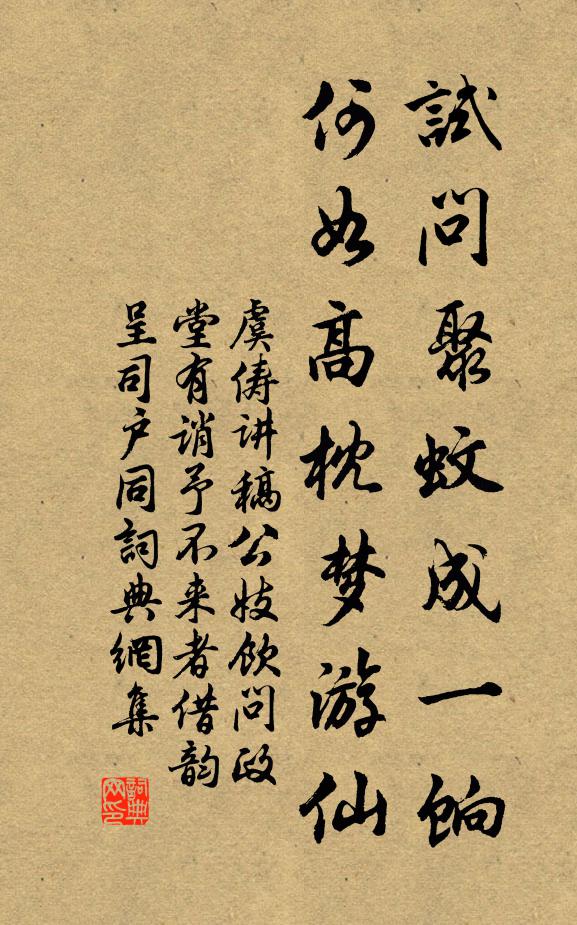 試問聚蚊成一餉
何如高枕梦游仙
虞俦讲稿公妓饮問政
堂有诮予不来者借韵
呈司户同詞典網集
詞典
网印